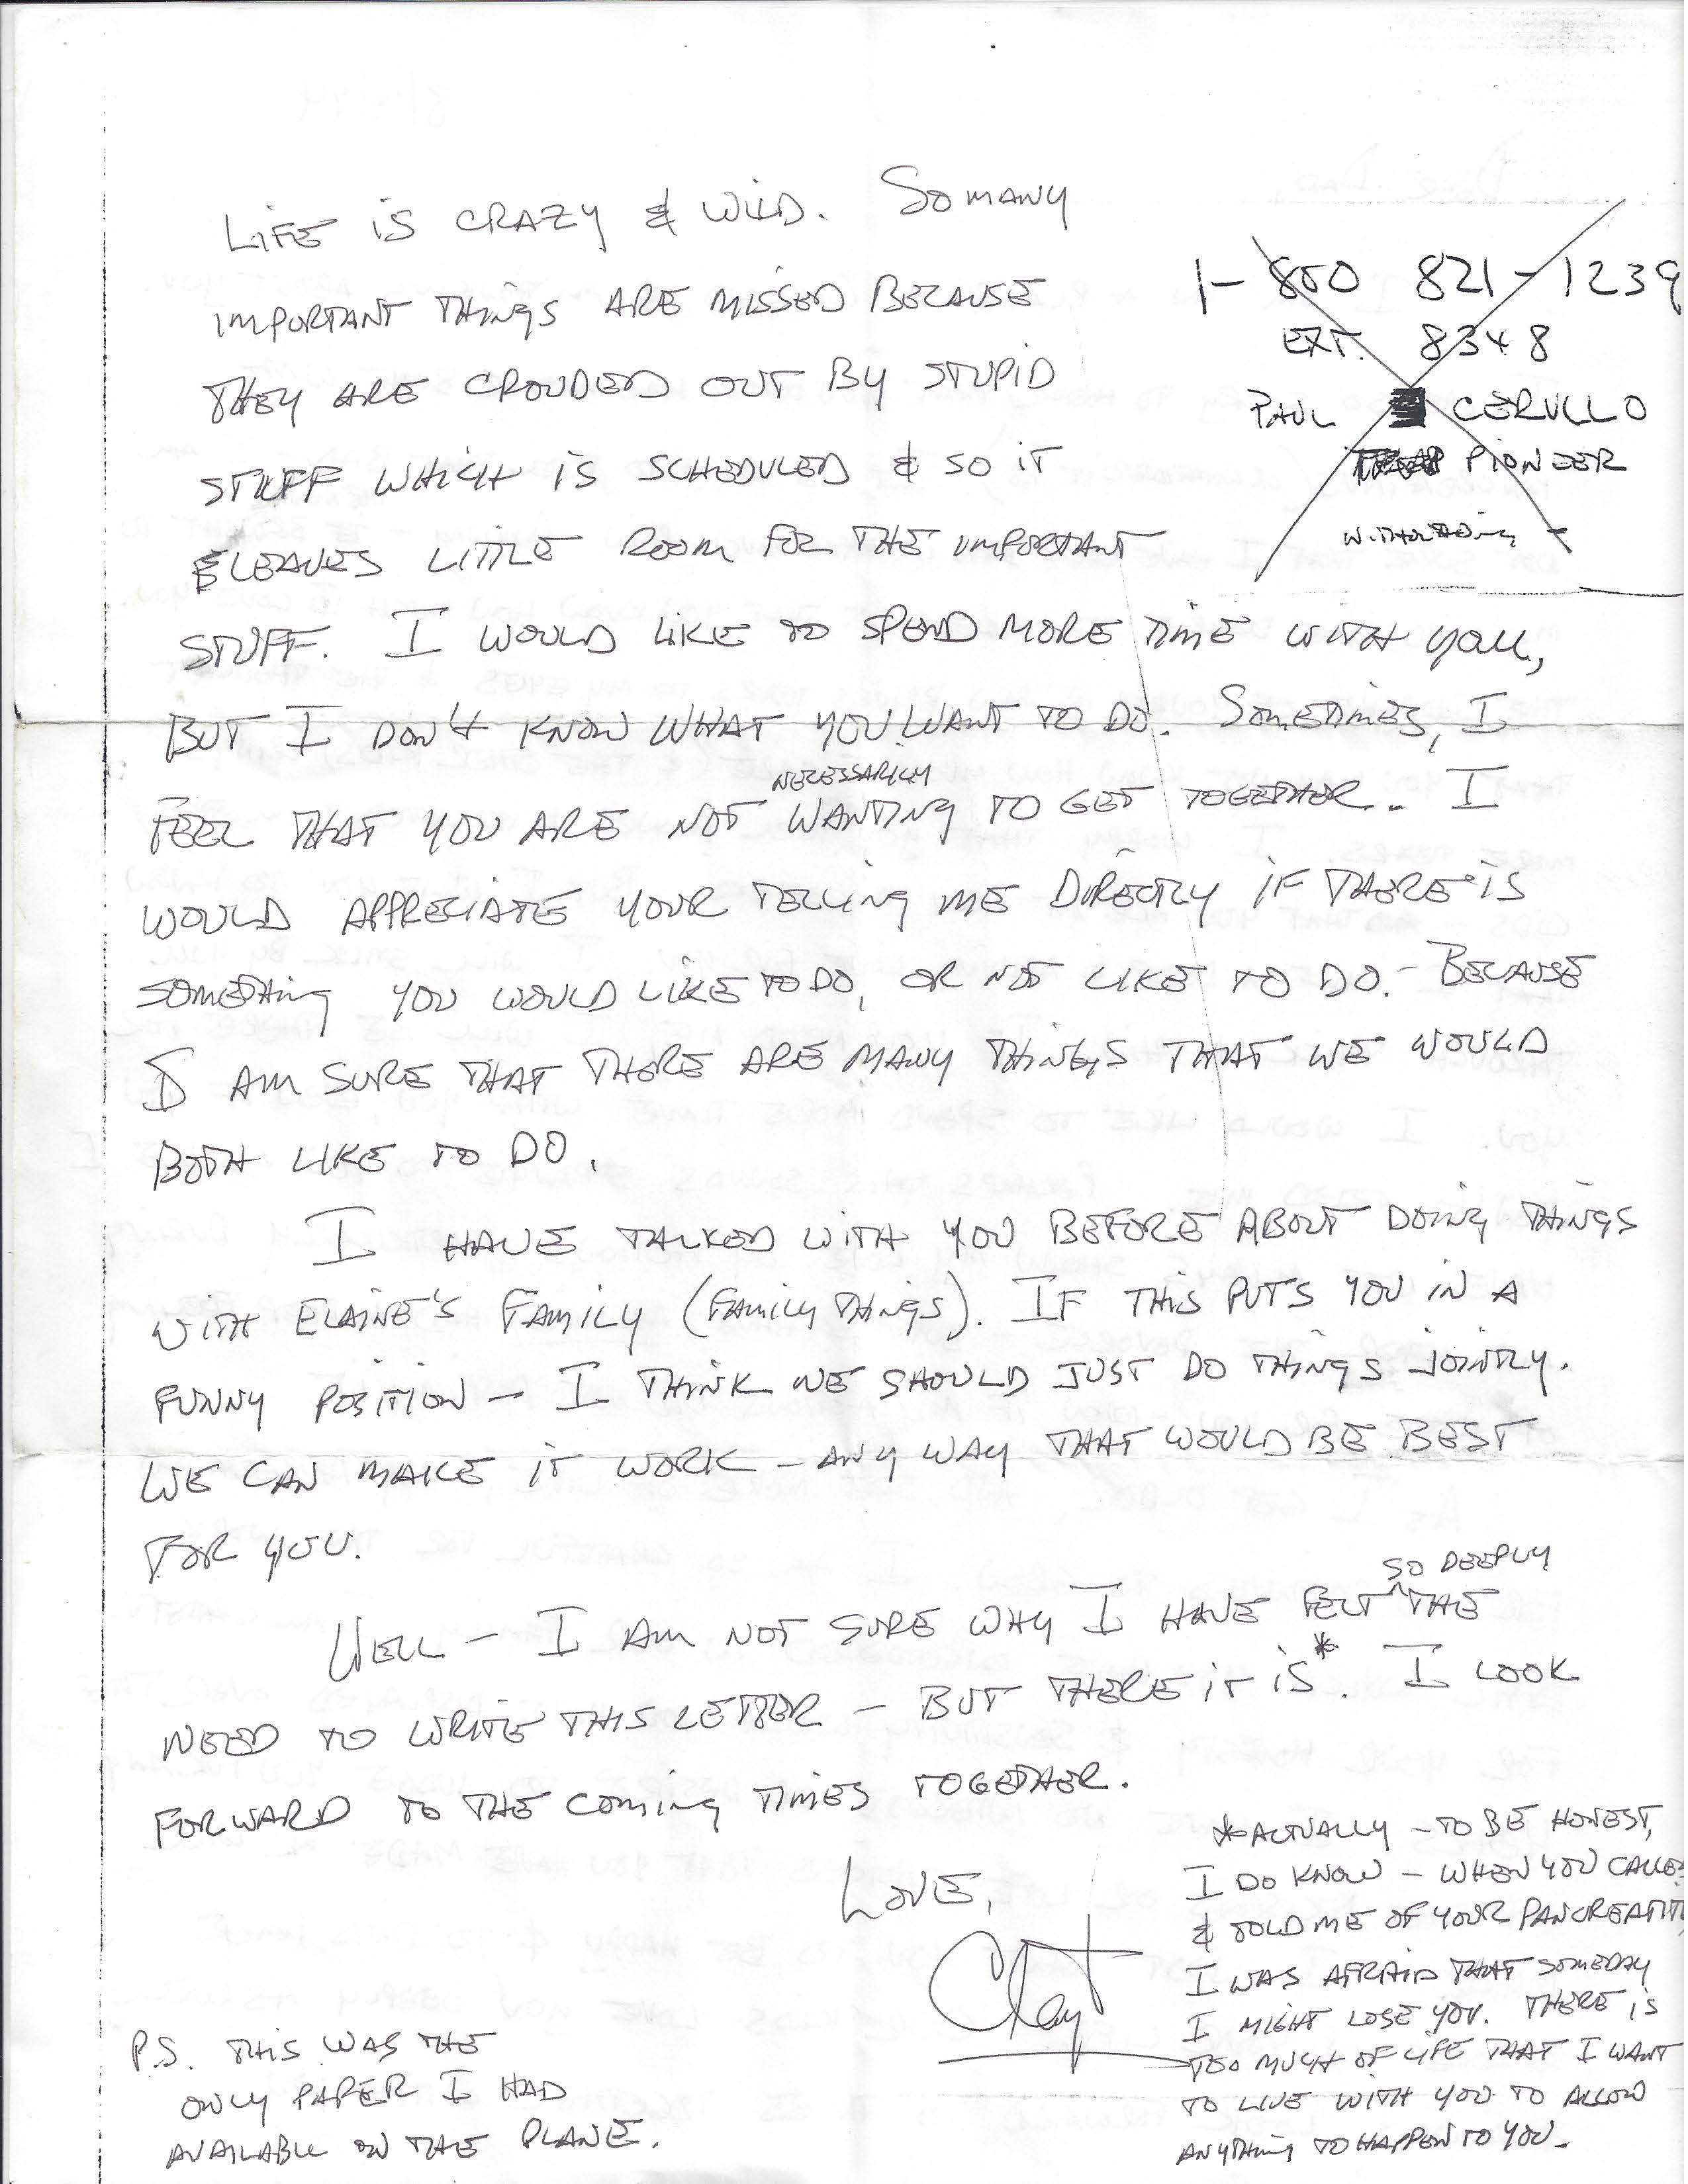 LIFE IS CRAZY & WILD. SO MANY
IMPORTANT THINGS ARE MISSED BECAUSE
THEY ARE CROUDED OUT BY STUPID
STUFF WHICH IS SCHEDULED & SO IT
LEAVES LITTLE ROOM FOR THE IMPORTANT
STUFF. I WOULD LIKE TO SPEND MORE TIME WITH YOU,
BUT I DON'T KNOW WHAT YOU WANT TO DO. SOMETIMES, I
NECESSARILY
FEEL THAT YOU ARE NOT WANTING TO GET TOGETHER. I
WOULD APPRECIATE YOUR TELLING ME DIRECTLY IF THERE IS
SOMETHING YOU WOULD LIKE TO DO, OR NOT LIKE TO DO. - BECAUSE
I AM SURE THAT THERE ARE MANY THINGS THAT WE WOULD
BOTH LIKE TO DO.
I HAVE TALKED WITH YOU BEFORE ABOUT DOING THINGS
WITH ELAINE'S FAMILY (FAMILY THINGS). IF THIS PUTS YOU IN A
FUNNY POSITION - I THINK WE SHOULD JUST DO THINGS JOINTLY.
WE CAN MAKE IT WORK - ANY WAY THAT WOULD BE BEST
FOR YOU.
SO DEEPLY
WELL - I AM NOT SURE WHY I HAVE FELT ^ THE
NEED TO WRITE THIS LETTER - BUT THERE IT IS*. I LOOK
FORWARD TO THE COMING TIMES TOGETHER.
LOVE,
Clay
1- 800 821-1239
EXT. 8348
PAUL CERULLO
PIONEER
* ACTUALLY - TO BE HONEST,
I DO KNOW - WHEN YOU CALLED
& TOLD ME OF YOUR PANCREATIT
I WAS AFRAID THAT SOMEDAY
I MIGHT LOSE YOU. THERE IS
TOO MUCH OF LIFE THAT I WANT
TO LIVE WITH YOU TO ALLOW
ANYTHING TO HAPPEN TO YOU.
P.S. THIS WAS THE
ONLY PAPER I HAD
AVAILABLE ON THE PLANE.